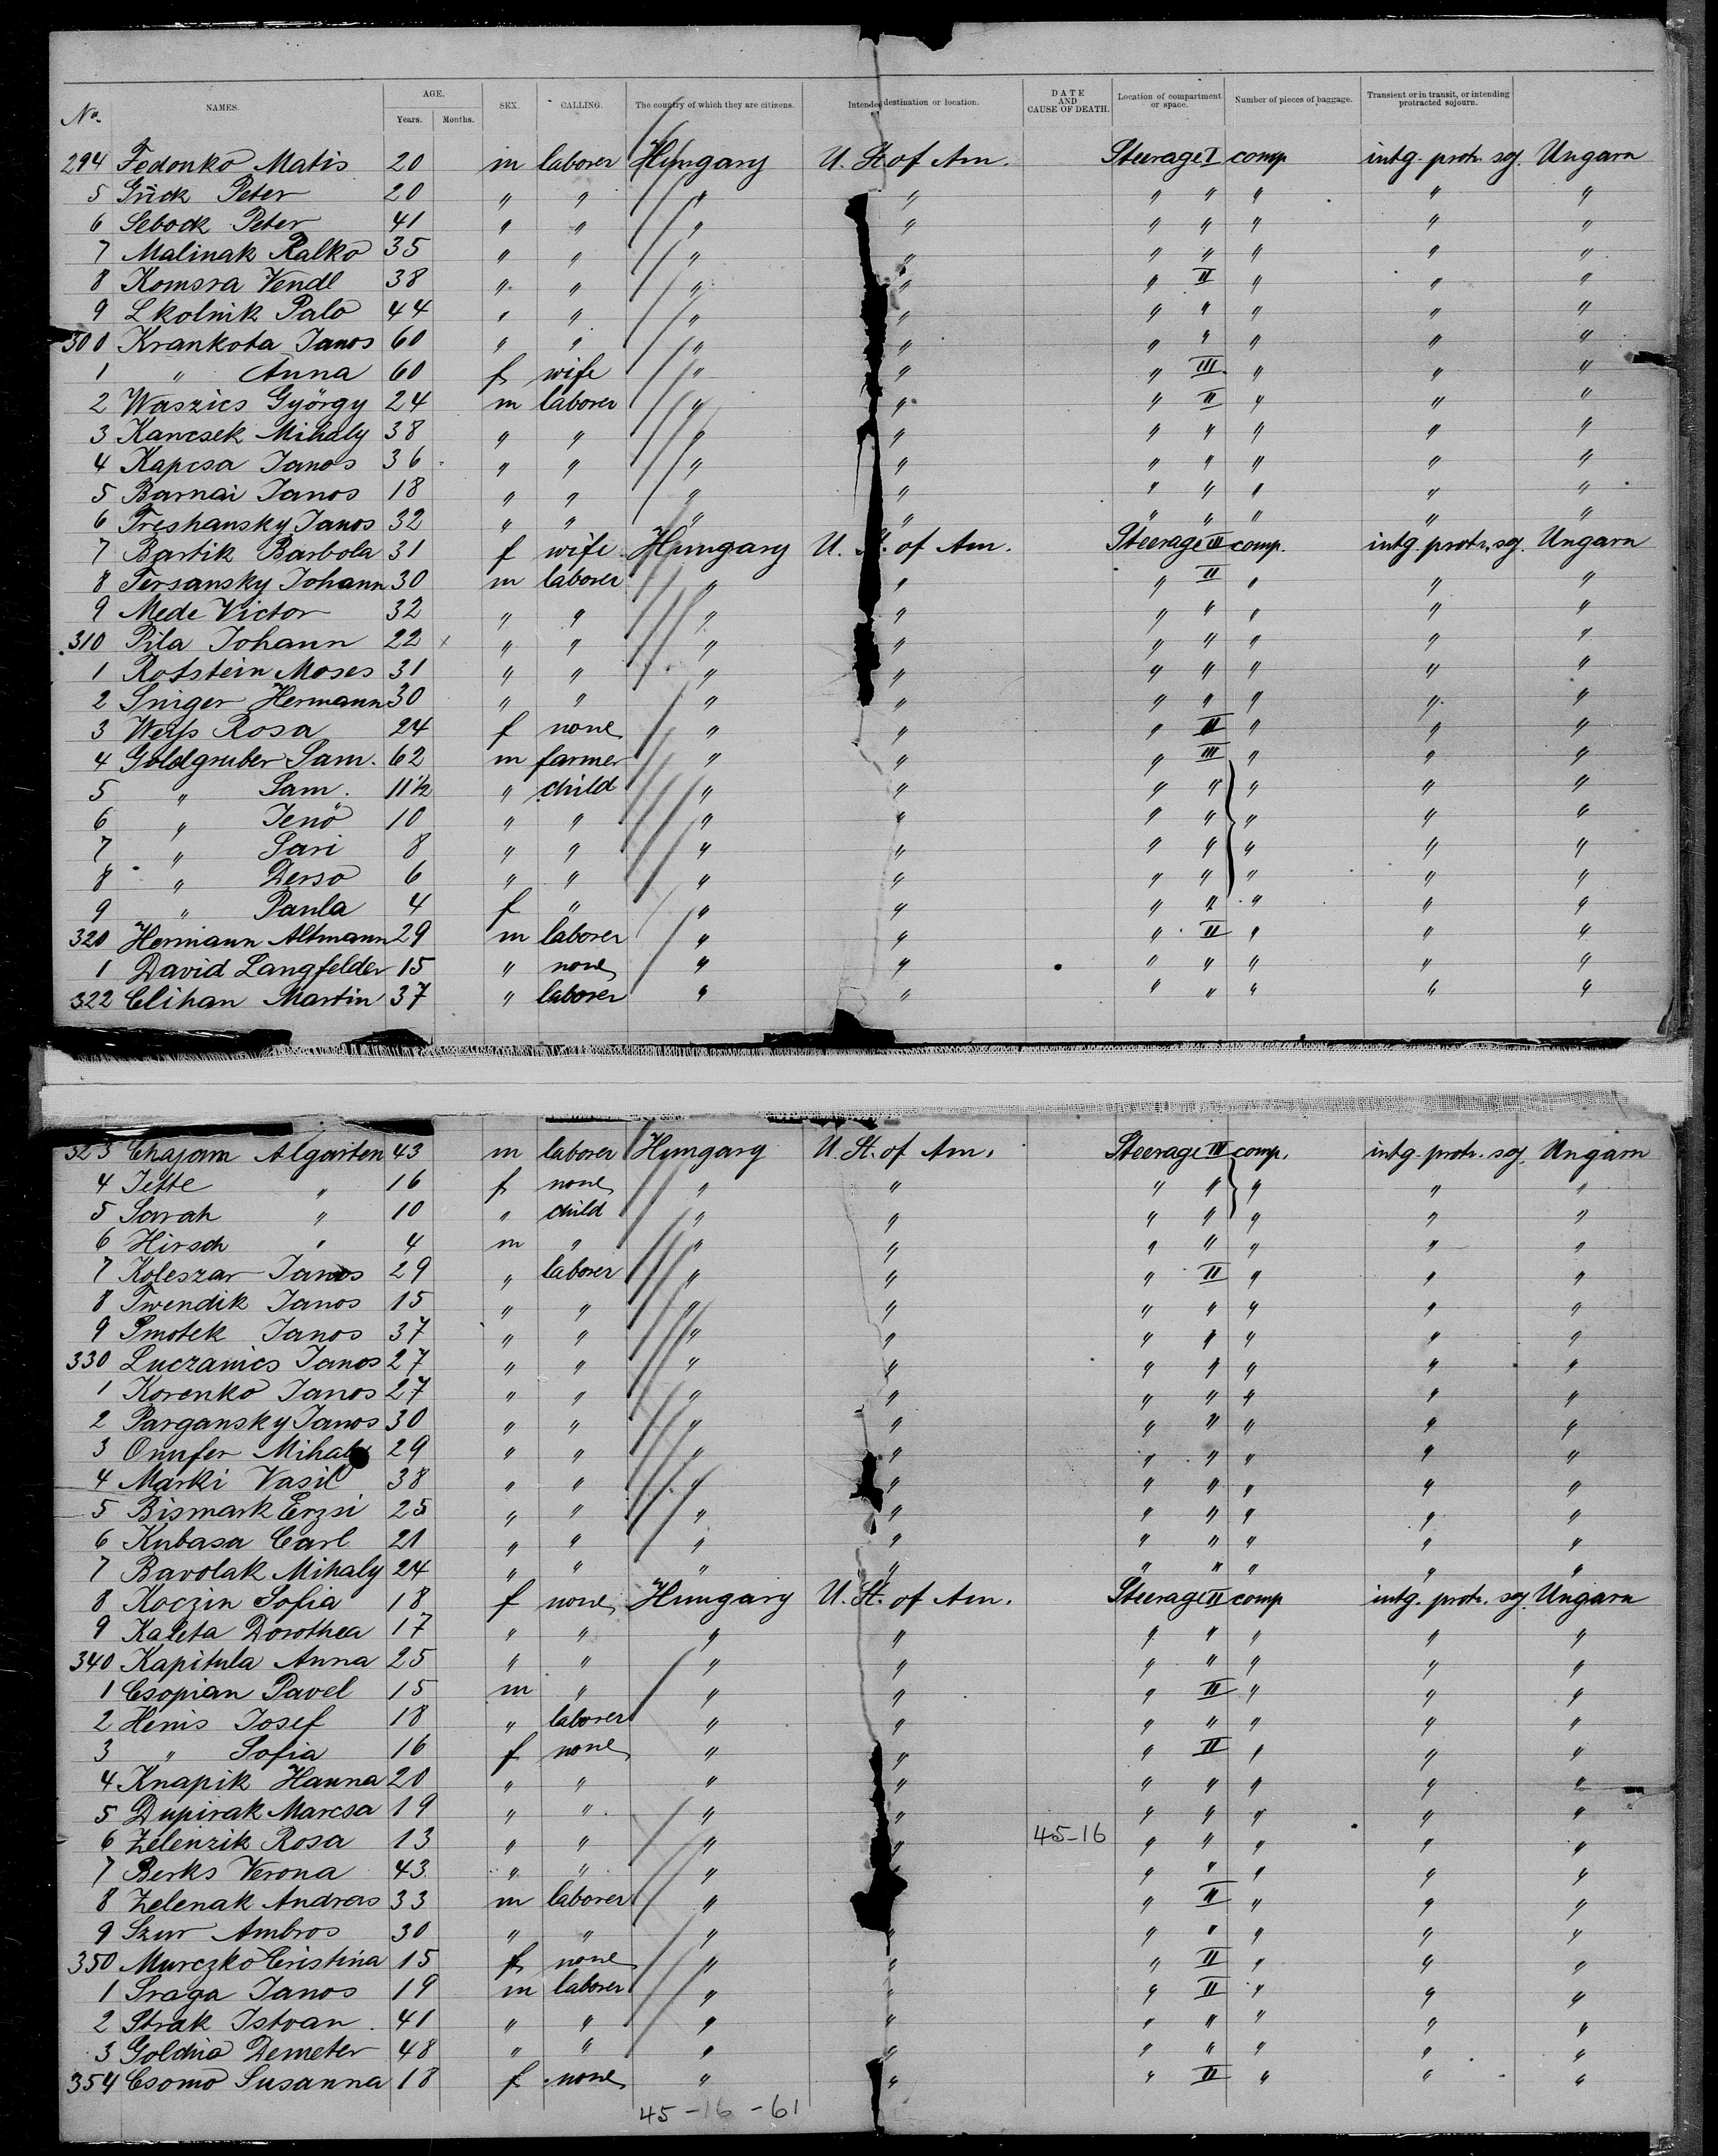 No. NAMES. AGE. Years. Months. SEX. CALLING. The country of which they are citizens. Intended destination or location. DATE AND CAUSE OF DEATH. Location of compartment or space. Number of pieces of baggage. Transient or in transit, or intending protracted sojourn.
294 Fedonko Matis 20 m laborer Hungary U. St. of Am. Steerage I comp intg. protr. soj. Ungarn
5 Gück Peter 20 " " " " " " " " "
6 Sebock Peter 41 " " " " " " " " "
7 Malinak Ralko 35 " " " " " " " " "
8 Komsra Vendl 38 " " " " " II " " "
9 Lkolnik Palo 44 " " " " " " " " "
300 Krankota Janos 60 " " " " " " " " "
1 " Anna 60 f wife " " " III " " "
2 Waszics György 24 m laborer " " " II " " "
3 Kancsek Mihaly 38 " " " " " " " " "
4 Kapcsa Janos 36 " " " " " " " " "
5 Barnai Janos 18 " " " " " " " " "
6 Treshansky Janos 32 " " " " " " " " "
7 Bartik Barbola 31 f wife Hungary U. St. of Am. Steerage II comp. intg. protr. soj. Ungarn
8 Tersansky Johann 30 m laborer " " " II " " "
9 Mede Victor 32 " " " " " " " " "
310 Pila Johann 22 x " " " " " " " " "
1 Rotstein Moses 31 " " " " " " " " "
2 Sniger Hermann 30 " " " " " " " " "
3 Weiss Rosa 24 f none " " " II " " "
4 Goldgruber Sam. 62 m farmer " " " III " " "
5 " Sam. 11½ " child " " " " " " "
6 " Jenö 10 " " " " " " " " "
7 " Sari 8 " " " " " " " " "
8 " Derso 6 " " " " " " " " "
9 " Paula 4 f " " " " " " " "
320 Hermann Altmann 29 m laborer " " " II " " "
1 David Langfelder 15 " none " " " " " " "
322 Clihan Martin 37 " laborer " " " " " " "
323 Chajam Algarten 43 m laborer Hungary U. St. of Am. Steerage III comp. intg. protr. soj. Ungarn
4 Jette " 16 f none " " " " " " "
5 Sarah " 10 " child " " " " " " "
6 Hirsch " 4 m " " " " " " " "
7 Koleszar Janos 29 " laborer " " " II " " "
8 Twendik Janos 15 " " " " " " " " "
9 Smotek Janos 37 " " " " " " " " "
330 Luczanics Janos 27 " " " " " " " " "
1 Korenko Janos 27 " " " " " " " " "
2 Pargansky Janos 30 " " " " " " " " "
3 Onufer Mihaly 29 " " " " " " " " "
4 Marki Vasil 38 " " " " " " " " "
5 Bismark Erzsi 25 " " " " " " " " "
6 Kubasa Carl 21 " " " " " " " " "
7 Bavolak Mihaly 24 " " " " " " " " "
8 Koczin Sofia 18 f none Hungary U. St. of Am. Steerage II comp intg. protr. soj. Ungarn
9 Kaleta Dorothea 17 " " " " " " " " "
340 Kapitula Anna 25 " " " " " " " " "
1 Csopian Pavel 15 m " " " " II " " "
2 Henis Josef 18 " laborer " " " " " " "
3 " Sofia 16 f none " " " II " " "
4 Knapik Hanna 20 " " " " " " " " "
5 Dupirak Marcsa 19 " " " " " " " " "
6 Zelenzik Rosa 13 " " " " 45-16 " " " " "
7 Berks Verona 43 " " " " " " " " "
8 Zelenak Andras 33 m laborer " " " II " " "
9 Szur Ambros 30 " " " " " " " " "
350 Murczko Cristina 15 f none " " " II " " "
1 Sraga Janos 19 m laborer " " " II " " "
2 Strak Istvan 41 " " " " " " " " "
3 Goldnia Demeter 48 " " " " " " " " "
354 Csomo Susanna 18 f none " " " II " " "
45-16-61